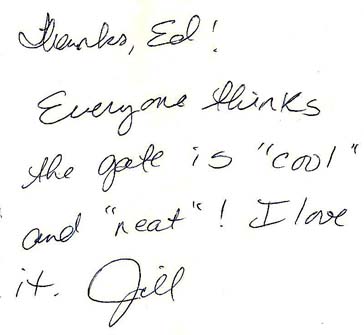 Thanks, Ed!
Everyone thinks
the gate is "cool"
and "neat"! I love
it. Jill